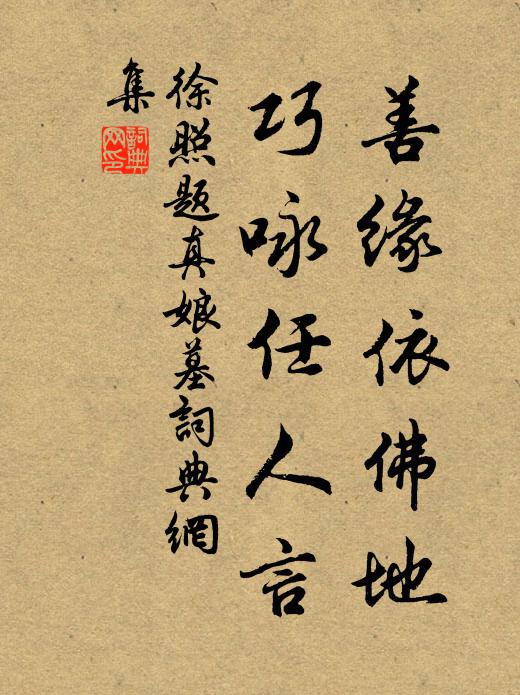 善缘依佛地
巧咏任人言
徐照题真娘墓詞典網
集
詞典網印